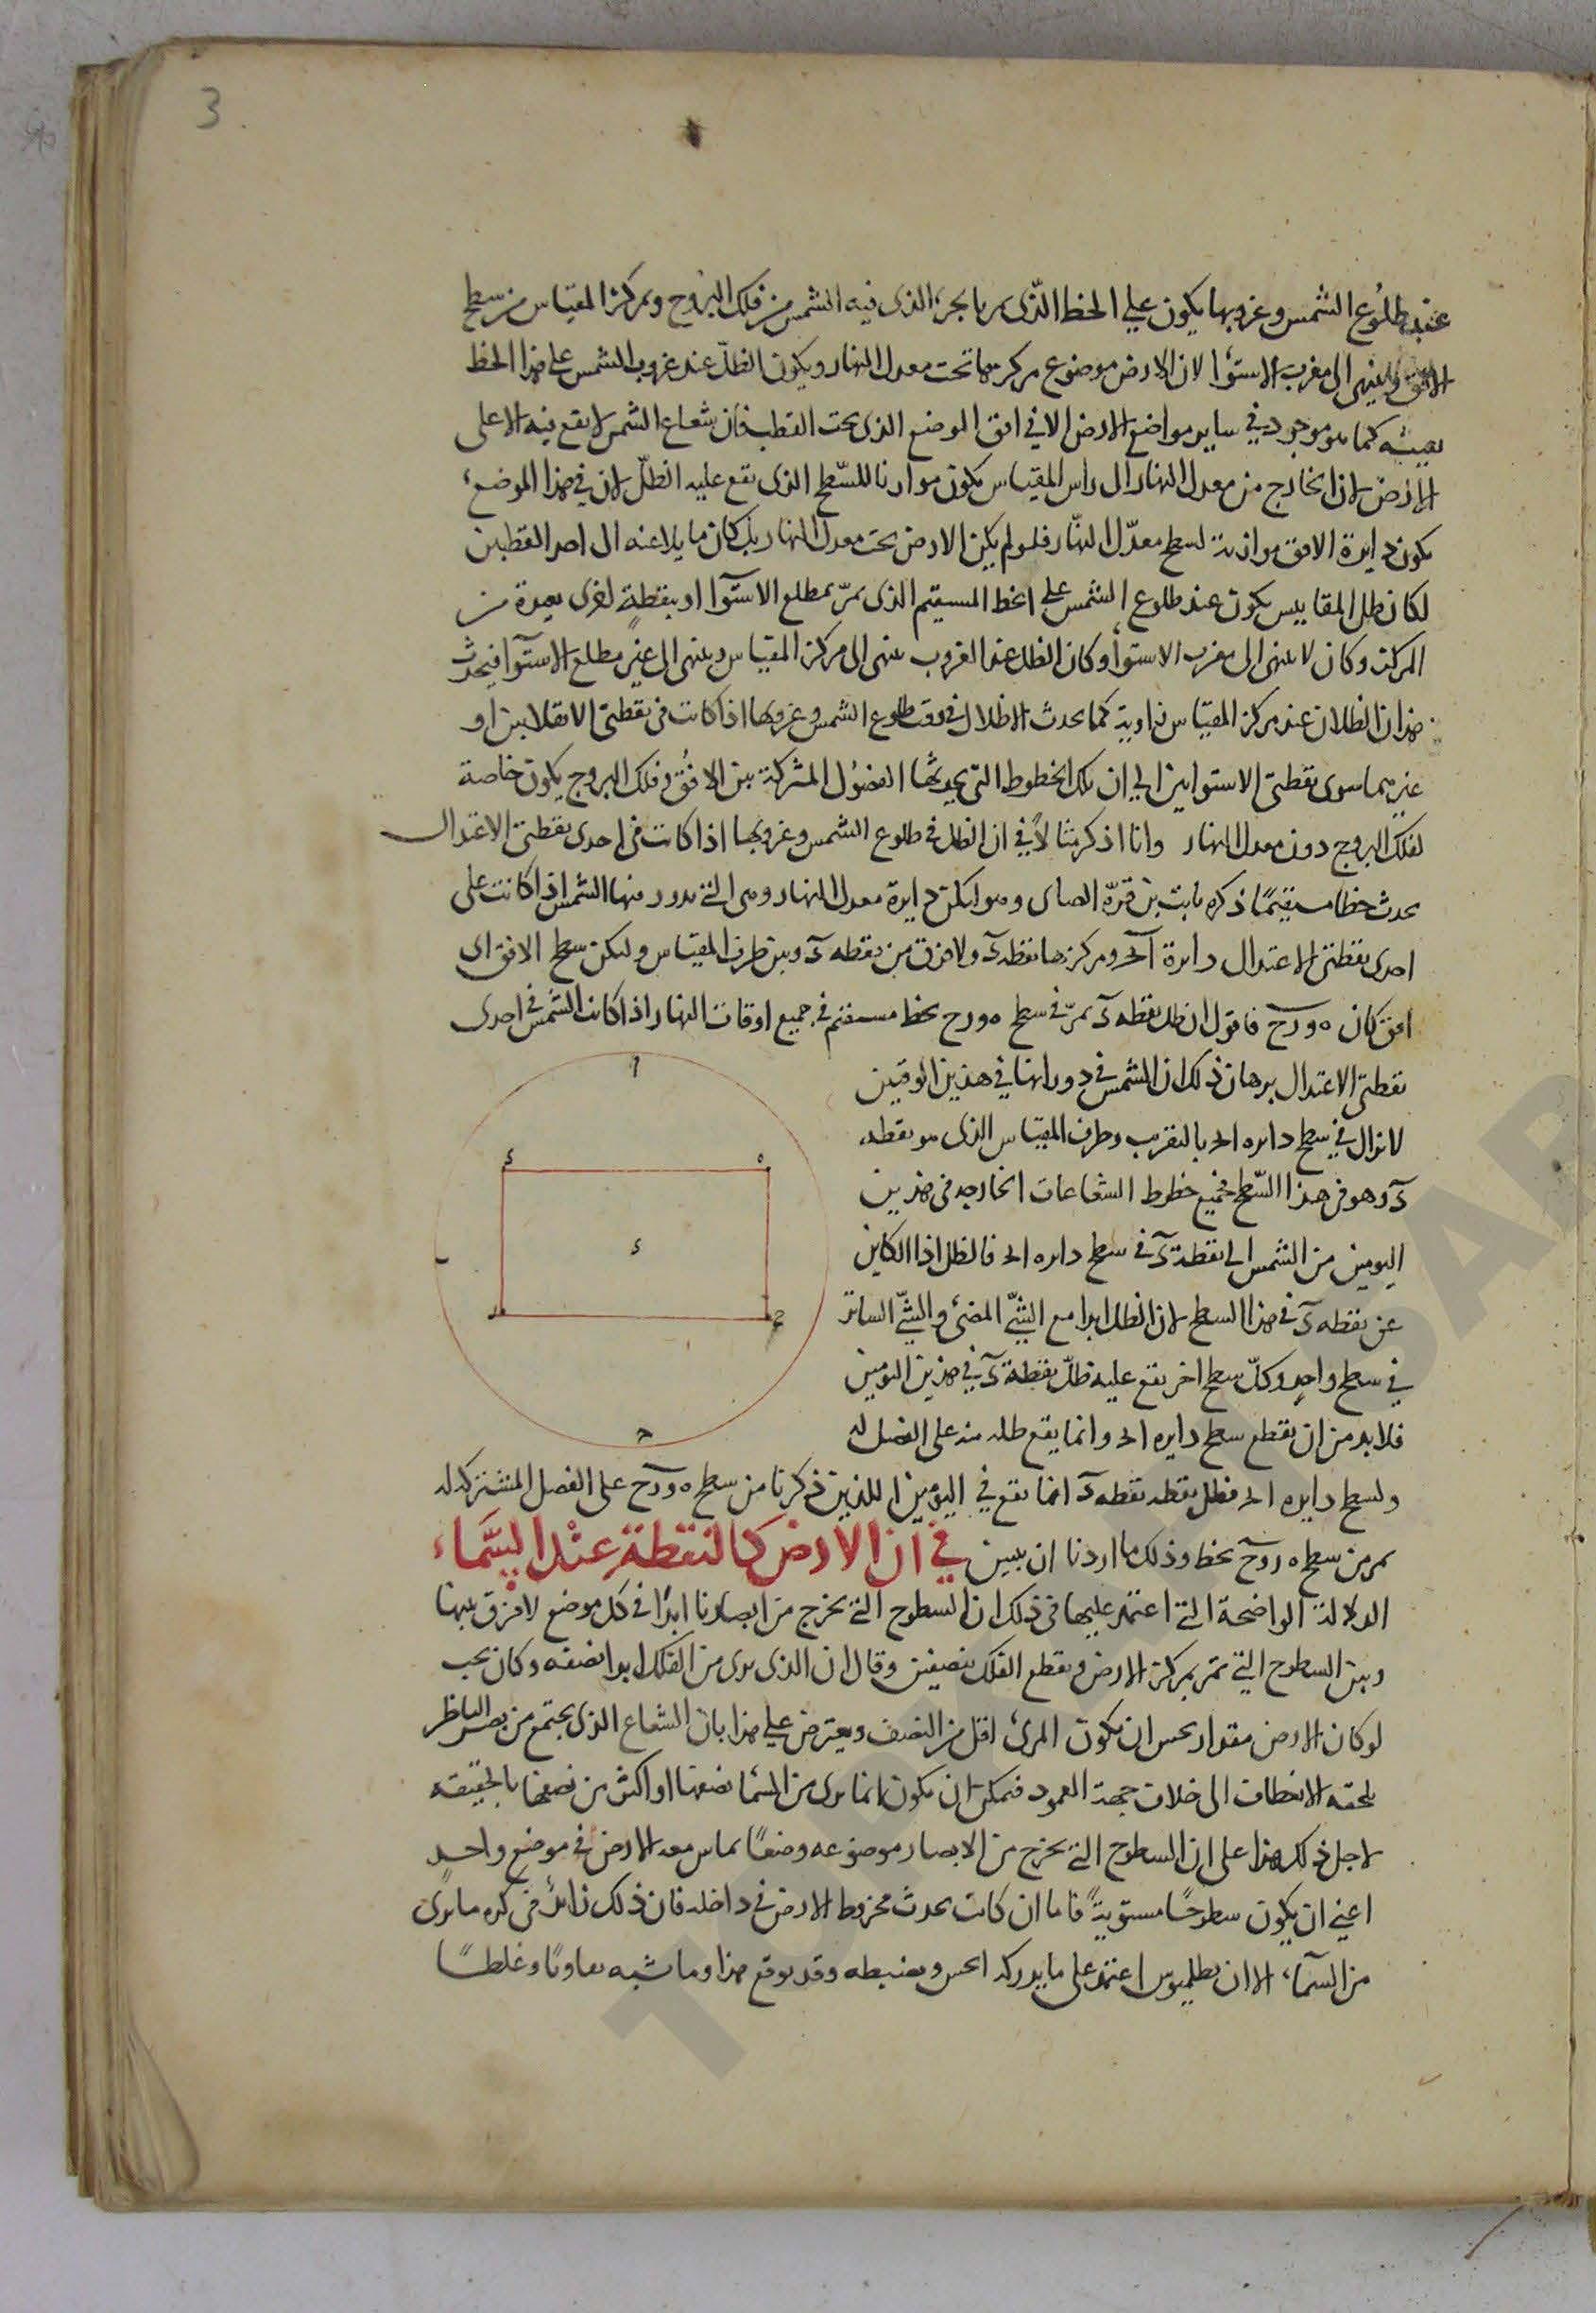 3
عند طلوع الشمس وغروبها يكون علي الخط الذّي يمر بالجزء الذي فيه الشمس من فلك البروج ومركز المقياس من سطح
الافق وينتهى الى مغرب الاستوٓا لان الارض موضوع مركزها تحت معدل النهار ويكون الظلّ عند غروب الشمس على هذا الخط
بعينه كما هو موجود في ساير مواضع الارض الا في افق الموضع الذي تحت القطب فان شعاع الشمس لا يقع فيه الا على
الارض لان الخارج من معدل النهار الى راس المقياس يكون موازنا للسّطح الذي تقع عليه الظلّ لان في هذا الموضع
يكون دايرة الافق موازية لسطح معدّل النهّار فلو لم يكن الارض تحت معدل النهار بل كان مايلا عنه الى احد القطبين
لكان ظل المقاييس يكون عند طلوع الشمس على الخط المستقيم الذى يمرّ بمطلع الاستوٓا او بنقطةٍ اخرى بعيدة من
المركز وكان لا ينتهى الى مغرب الاستوا وكان الظل عند الغروب ينتهى الى مركز المقياس وينتهى الى غير مطلع الاستوٓا فيحدث
هذان الظلان عند مركز المقياس زاوية كما يحدث الاظلال في وقت طلوع الشمس وغروبها اذا كانت في نقطتى الانقلابين او
غيرهما سوى نقطتى الاستوايين الى ان تلك الخطوط التى يحدثها الفصُول المشتركة بين الافُق وفلك البروج يكون خاصة
لفلك البروج دون معدل النهار وانا اذكر مثالاً في ان الظل في طلوع الشمس وغروبها اذا كانت في احدى نقطتى الاعتدال
يحدث خطا مستقيمًا ذكره ثابت بن قرّة الصابى وهو ليكن دايرة معدل النهار وهى التى تدور فيها الشمس اذا كانت على
احدى نقطتى الاعتدال دايرة ابح ومركزها نقطه ء ولا فرق بين نقطه ء وبين طرف المقياس وليكن سطح الافق اى
افق كان ه ورح فاقول ان ظل نقطه ء يمرّ في سطح ه ورح بخط مستقيم في جميع اوقات النهار اذا كانت الشمس في احدى
نقطتى الاعتدال برهان ذلك ان الشمس في دورانها في هذين الوقتين
لا تزال في سطح دايره ابح بالتقريب وطرف المقياس الذى هو نقطه
ء وهو في هذا السّطح فجميع خطوط الشعاعات الخارجه في هذين
اليومين من الشمس الى نقطة ء في سطح دايره ابح فالظل اذا الكاين
عن نقطه ء في هذا السطح لان الظل ابدا مع الشىّ المضئ والشىّ الساتر
في سطح واحدٍ وكلّ سطح اخر يقع عليه ظلّ نقطة ء في هذين اليومين
فلا بد من ان يقطع سطح دايره ابح وانما يقع ظله منه على الفصل له
ولسطح دايره ابح فظل نقطه نقطه ء انما يقع في اليومين اللذين ذكرنا من سطح ه ورح على الفصل المشترك له
يمر من سطح ه ورح بخط وذلك ما اردنا ان نبين في ان الارض كالنقطة عند السَّماء
الدلالة الواضحة التى اعتمد عليها في ذلك ان السطوح التى يخرج من ابصارنا ابدًا في كل موضع لا فرق بينها
وبين السطوح التى تمرّ بمركز الارض ويقطع الفلك بنصفين وقال ان الذى يرى من الفلك ابدا نصفه وكان يجب
لو كان الارض مقدار يحس ان يكون المرئ اقل من النصف ويعترض على هذا بان الشعاع الذى يجتمع من بصر الناظر
يلحقه الانعطاف الى خلاف جهة العمود فيمكن ان يكون انما يرى من السّما نصفها او اكثر من نصفها بالحقيقه
لاجل ذلك هذا على ان السطوح التى يخرج من الابصار موضوعه وضعًا يماس معه الارض في موضع واحدٍ
اعني ان يكون سطوحًا مستويةً فاما ان كانت يحدث مخروط الارض في داخله فان ذلك زائدٌ في كره ما يرى
من السمآء الا ان بطلميوس اعتمد على ما يدركه الحس ويضبطه وقد يوقع هذا وما شبهه تفاوتًا وغلطًا
ا
ء
ه
ء
ب
ر
ح
ج